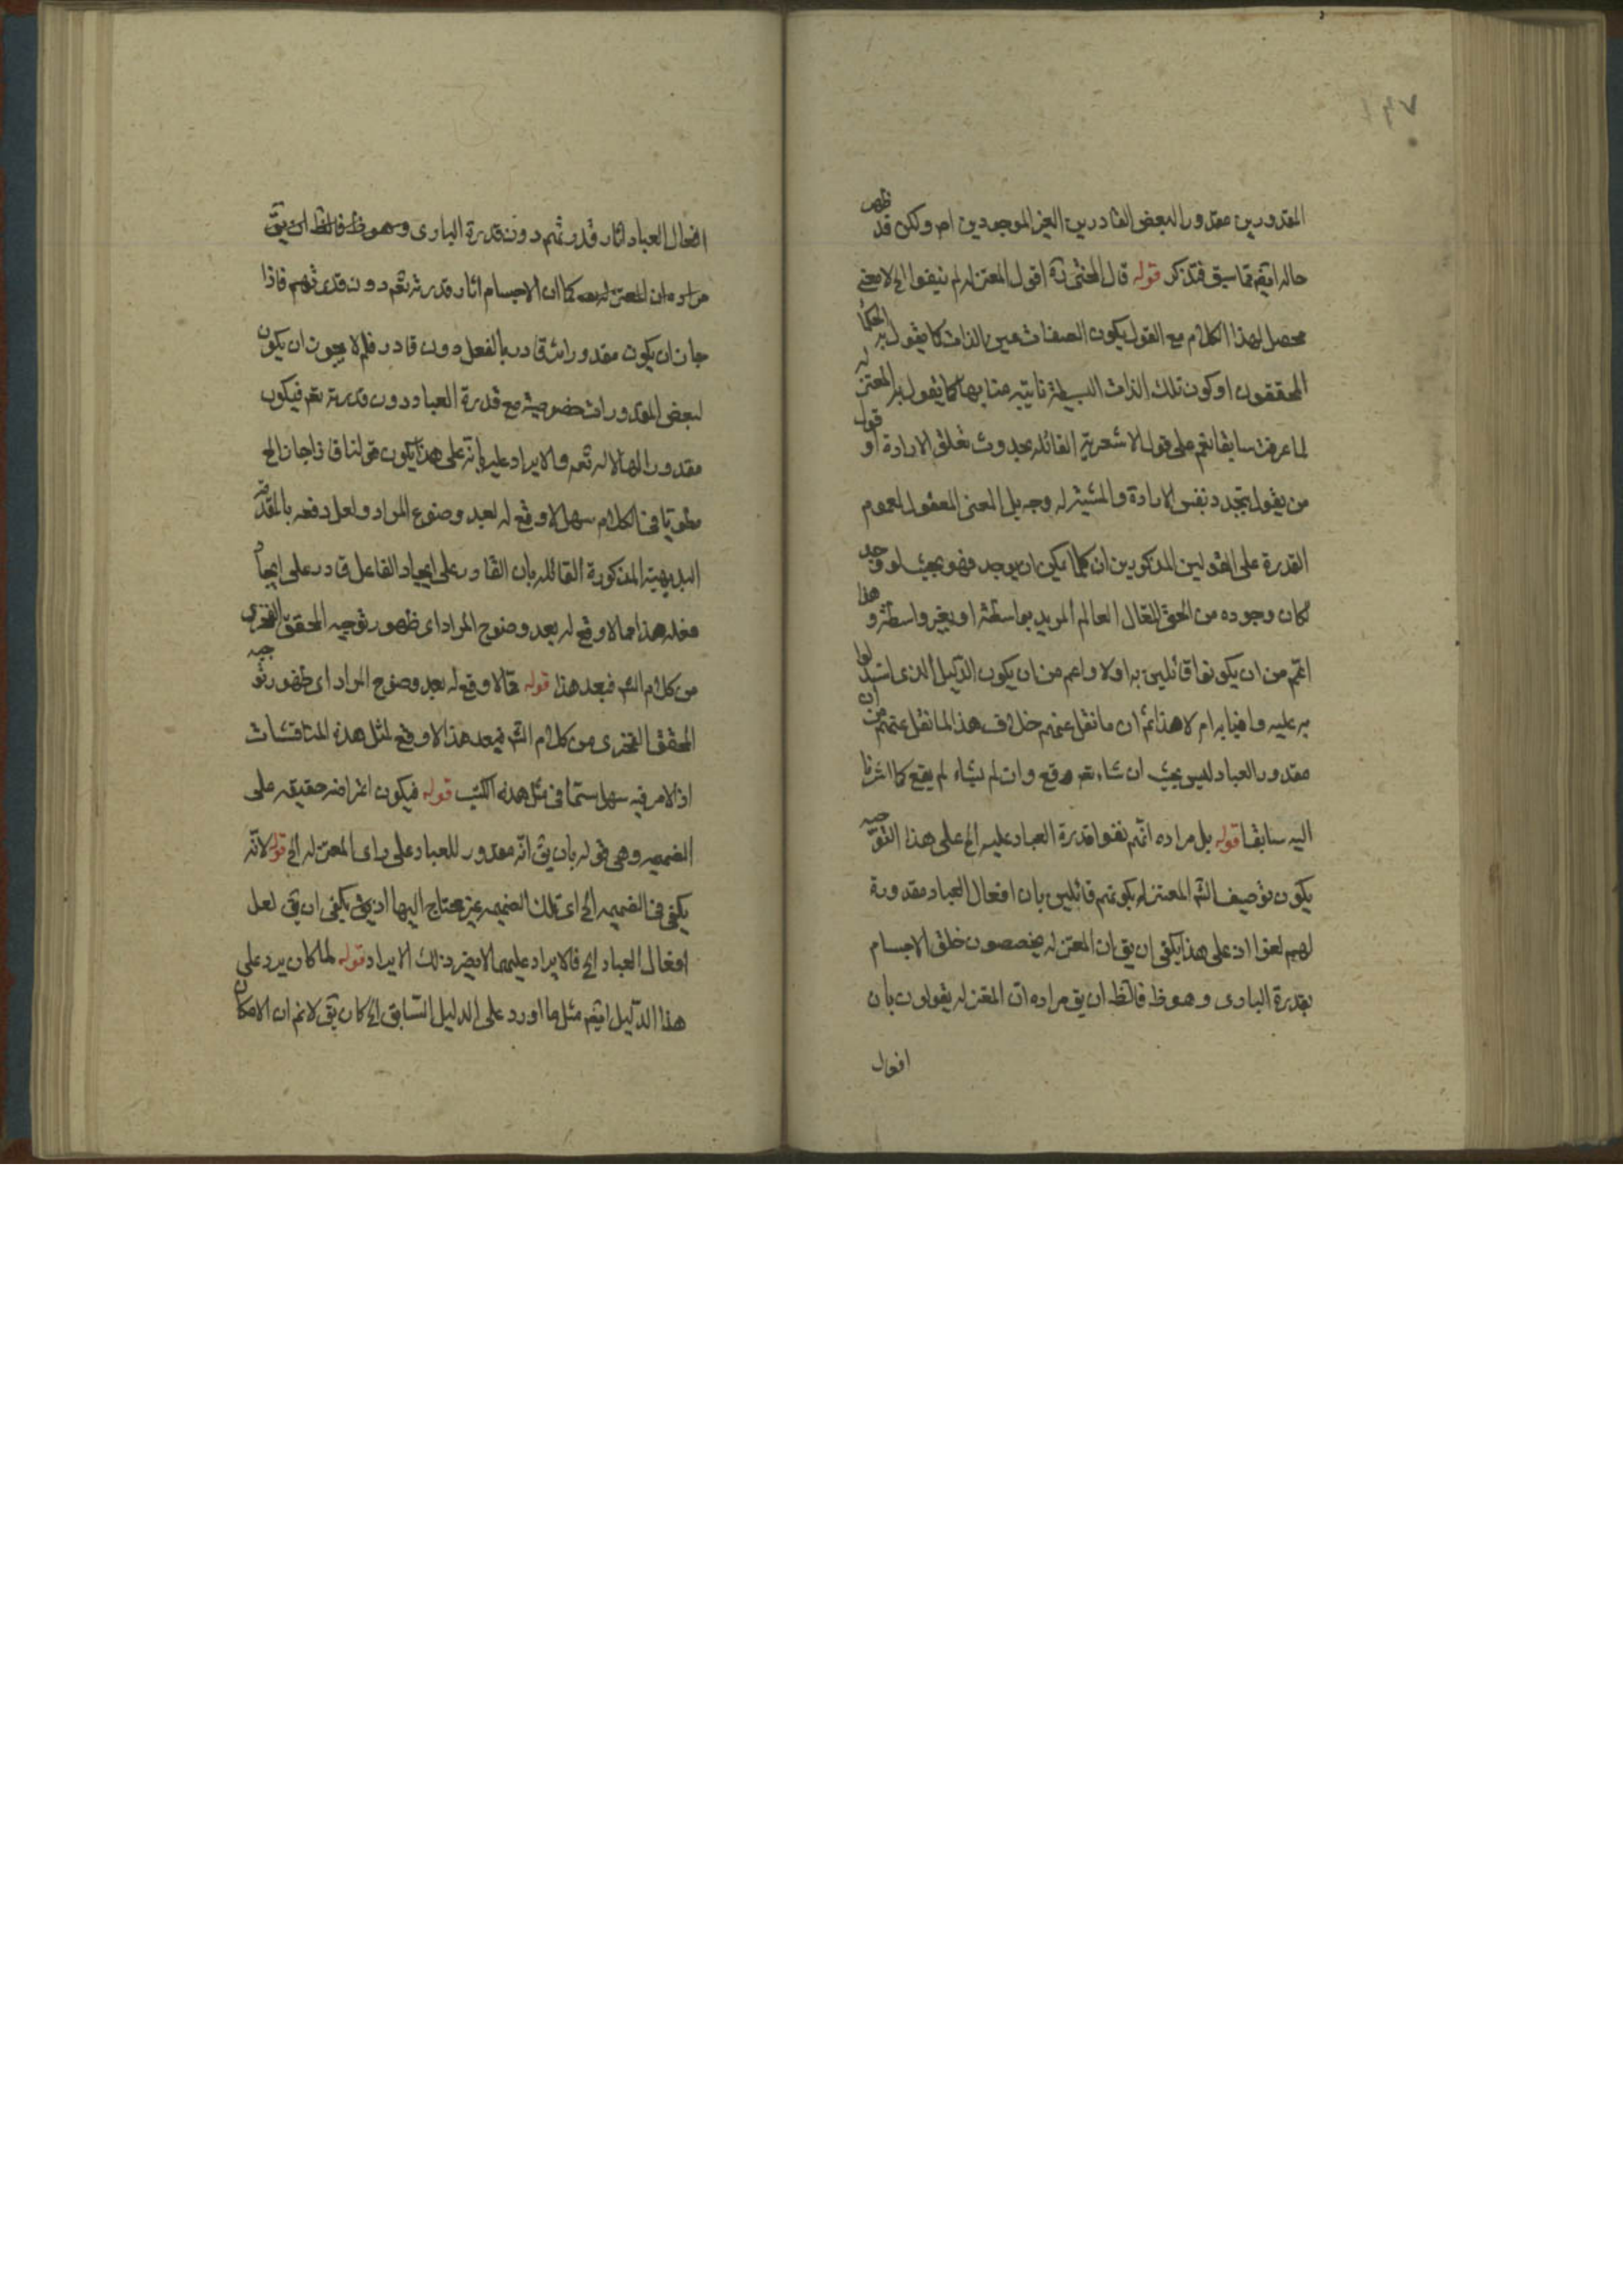 المقدورين مقدورا لبعض القادرين الغير الموجودين ام ولكن قد ظهر
حاله ايضم مما سبق فتذكر قوله قال المحشى ره اقول المعتزله لم ينفوا الخ لا معنى
محصل لهذا الكلام مع القول بكون الصفات عين الذات كما يقول به الحكما
المحققون او كون تلك الذات البسيطة نايبة منابها كما يقول به المعتزله
لما عرفت سابقا نعم على قول الاشعرية القائله بحدوث تعلق الارادة او قول
من يقول بتجدد نفس الارادة والمشية له وجه بل المعنى المعقول لعموم
القدرة على القولين المذكورين ان كلما يمكن ان يوجد فهو بحيث لو وجد
لكان وجوده من الحق المتعال العالم المريد بواسطة او بغير واسطة و هذا
اعم من ان يكونوا قائلين به اولا واعم من ان يكون الدليل الذى استدلوا
به عليه وافيا به ام لا هذا ثم ان ما نقل عنهم خلاف هذا لما نقل عنهم من ان
مقدور العباد ليس بحيث ان شاء تعم وقع وان لم يشاء لم يقع كما اشرنا
اليه سابقا قوله بل مراده انهم نفوا قدرة العباد عليه الخ على هذا التوجيه
يكون توصيف الشم المعتزله بكونهم قائلين بان افعال العباد مقدورة
لهم لغوا اذ على هذا يكفى ان يق ان المعتزله يخصصون خلق الاجسام
بقدرة البارى وهو ظ فالظ ان يق مراده ان المعتزله يقولون بان
افعال
افعال العباد اثار قدرتهم دون قدرة البارى وهو ظ فالظ ان يق
مراده ان المعتزله كما ان الاجسام اثار قدرته تعم دون قدرتهم فاذا
جاز ان يكون مقدورات قادر بالفعل دون قادر فلم لا يجوز ان يكون
لبعض المقدورات خصوصية مع قدرة العباد دون قدرته تعم فيكون
مقدورا لها لا له تعم والايراد عليه بانه على هذا يكون قولنا فاذا جاز الخ
مطويا فى الكلام سهل لا وقع له بعد وضوع المراد ولعل دفعه بالمقدمة
البديهية المذكورة القائله بان القادر على ايجاد الفاعل قادر على ايجاد
فعله هذا مما لا وقع له بعد وضوح المراد اى ظهور توجيه المحقق الفخرى
من كلام الشم فبعد هذا قوله مما لا وقع له بعد وضوح المراد اى ظهور توجيه
المحقق الفخرى من كلام الشم فبعد هذا لا وقع لمثل هذه المناقشات
اذ الامر فيه سهل سيما فى مثل هذه الكتب قوله فيكون اعراضه حقيقه على
الضميمه وهى قوله بان يق انه مقدور للعباد على راى المعتزله الخ قوله لانه
يكفى فى الضميمه الخ اى تلك الضميمه غير محتاج اليها اذ يق يكفى ان يق لعل
افعال العباد الخ فالايراد عليها لا يضر ذلك الايراد قوله لما كان يرد على
هذا الدليل ايضم مثل ما اورد على الدليل السابق الخ كان يق لا نم ان الامكان